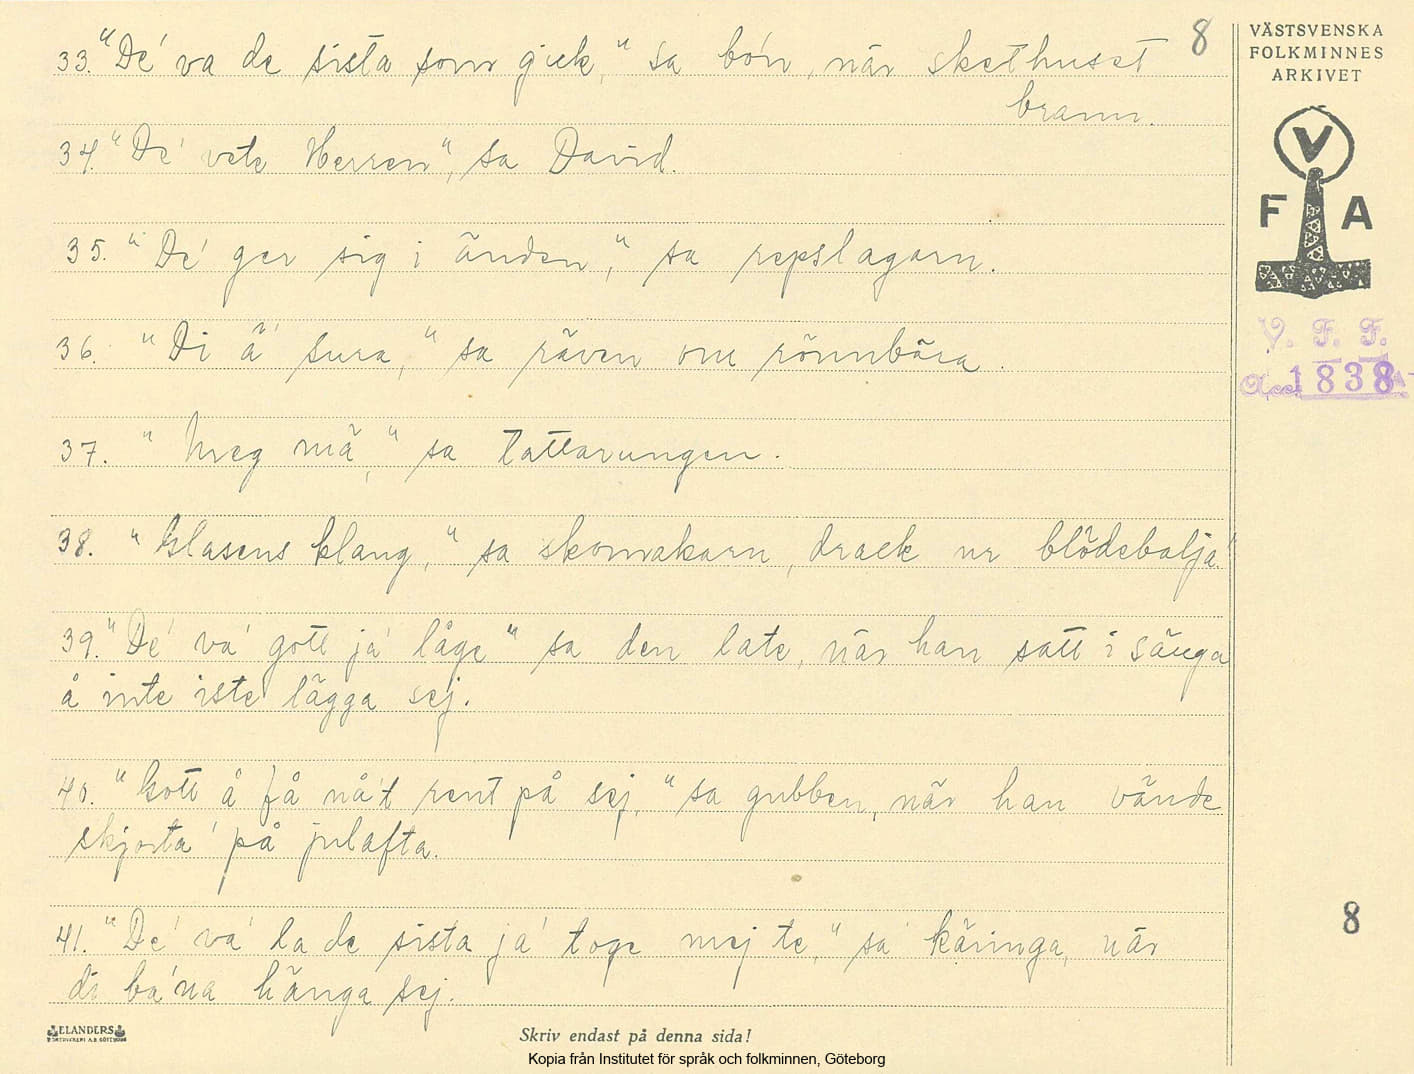 8
33. "De' va de sista som gick," sa bo'n, när skethuset
brann.
34. "De' vete Herren", sa David.
35. "De' ger sig i änden," sa repslagarn.
36. "Di ä' sura," sa räven om rönnbära.
37. "Meg mä," sa Tattarungen.
38. "Glasens klang," sa skomakarn, drack ur blödebalja."
39. "De' va' gott ja' låge" sa den late, när han satt i sänga
å inte iste lägga sej.
40. "Gott å få nå't rent på sej," sa gubben, när han vände
skjorta' på julafta.
41. "De' va' la de sista ja' toge mej te," sa' käringa, när
di ba'na hänga sej.
VÄSTSVENSKA
FOLKMINNES
ARKIVET
V
F A
V. F. F.
Acc. 1838
8
ELANDERS
Skriv endast på denna sida!
Kopia från Institutet för språk och folkminnen, Göteborg